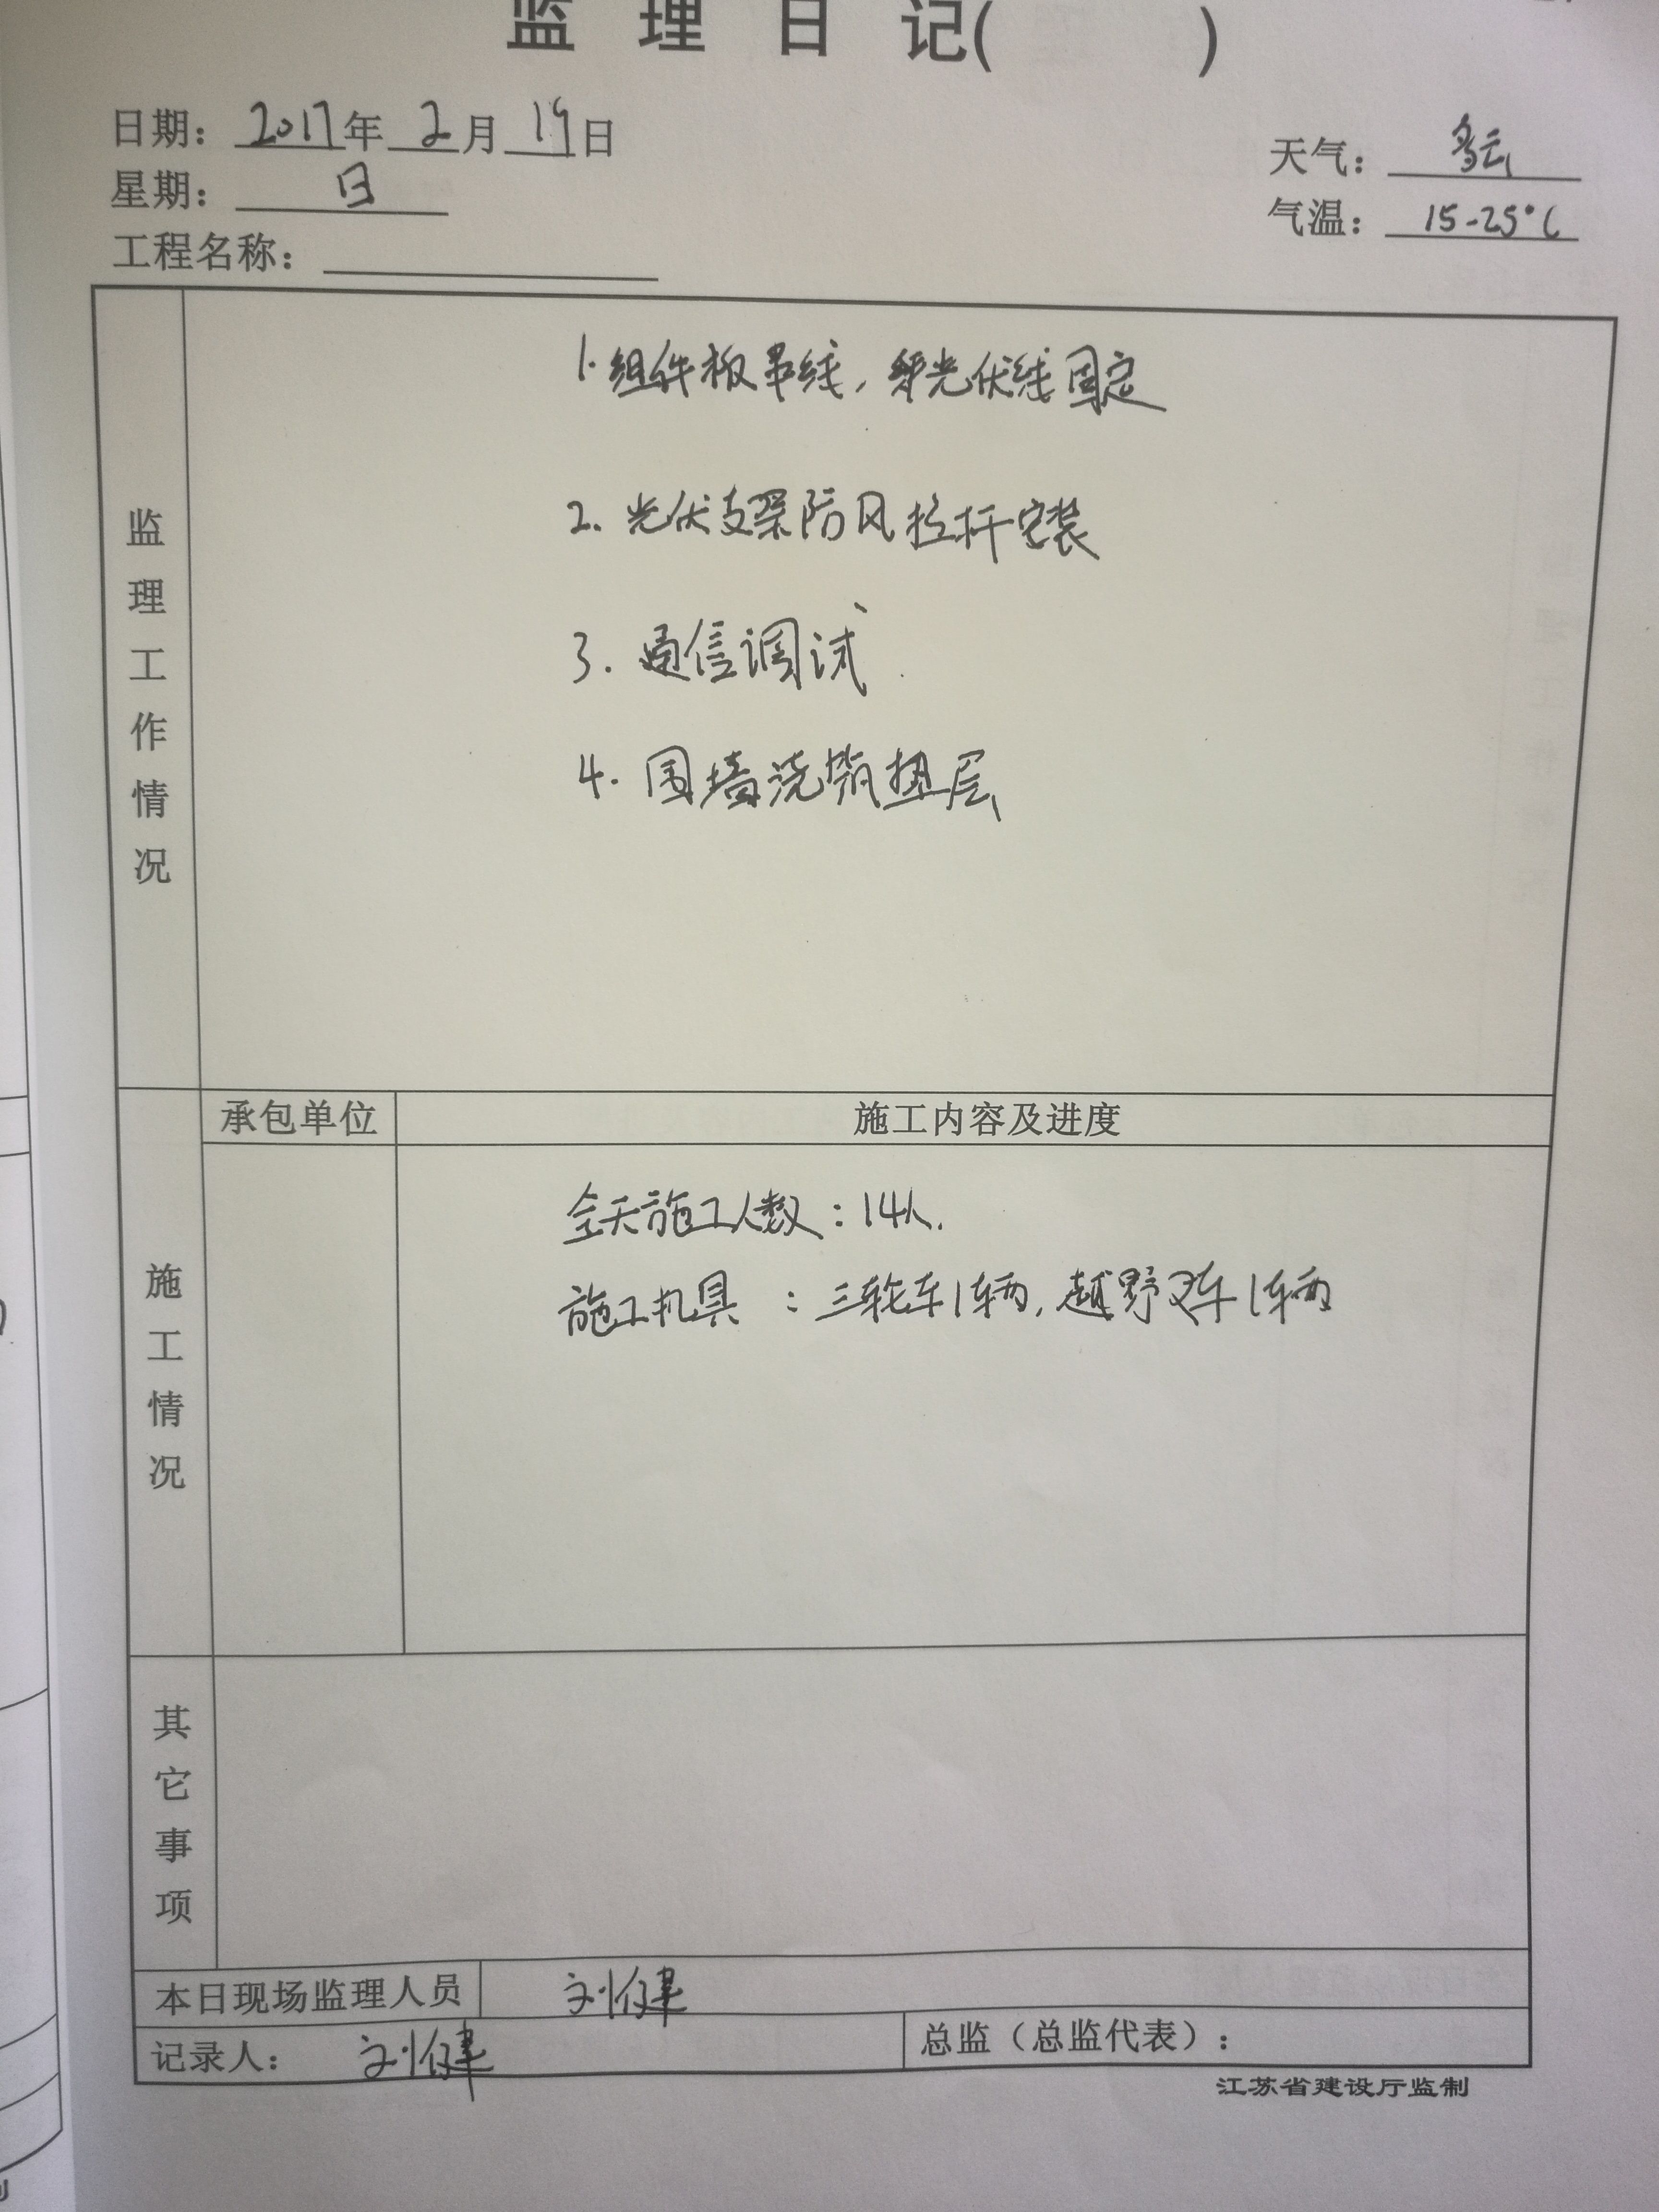 监理日记( )
日期：2017年2月19日
天气：多云
星期：日
气温：15-25°C
工程名称：
监理工作情况
1.组件板串线，绑光伏线固定
2.光伏支架防风拉杆安装
3.通信调试
4.围墙浇筑垫层
施工情况
承包单位
施工内容及进度
全天施工人数：14人.
施工机具：三轮车1辆，越野叉车1辆
其它事项
本日现场监理人员 刘健
记录人：刘健
总监（总监代表）：
江苏省建设厅监制